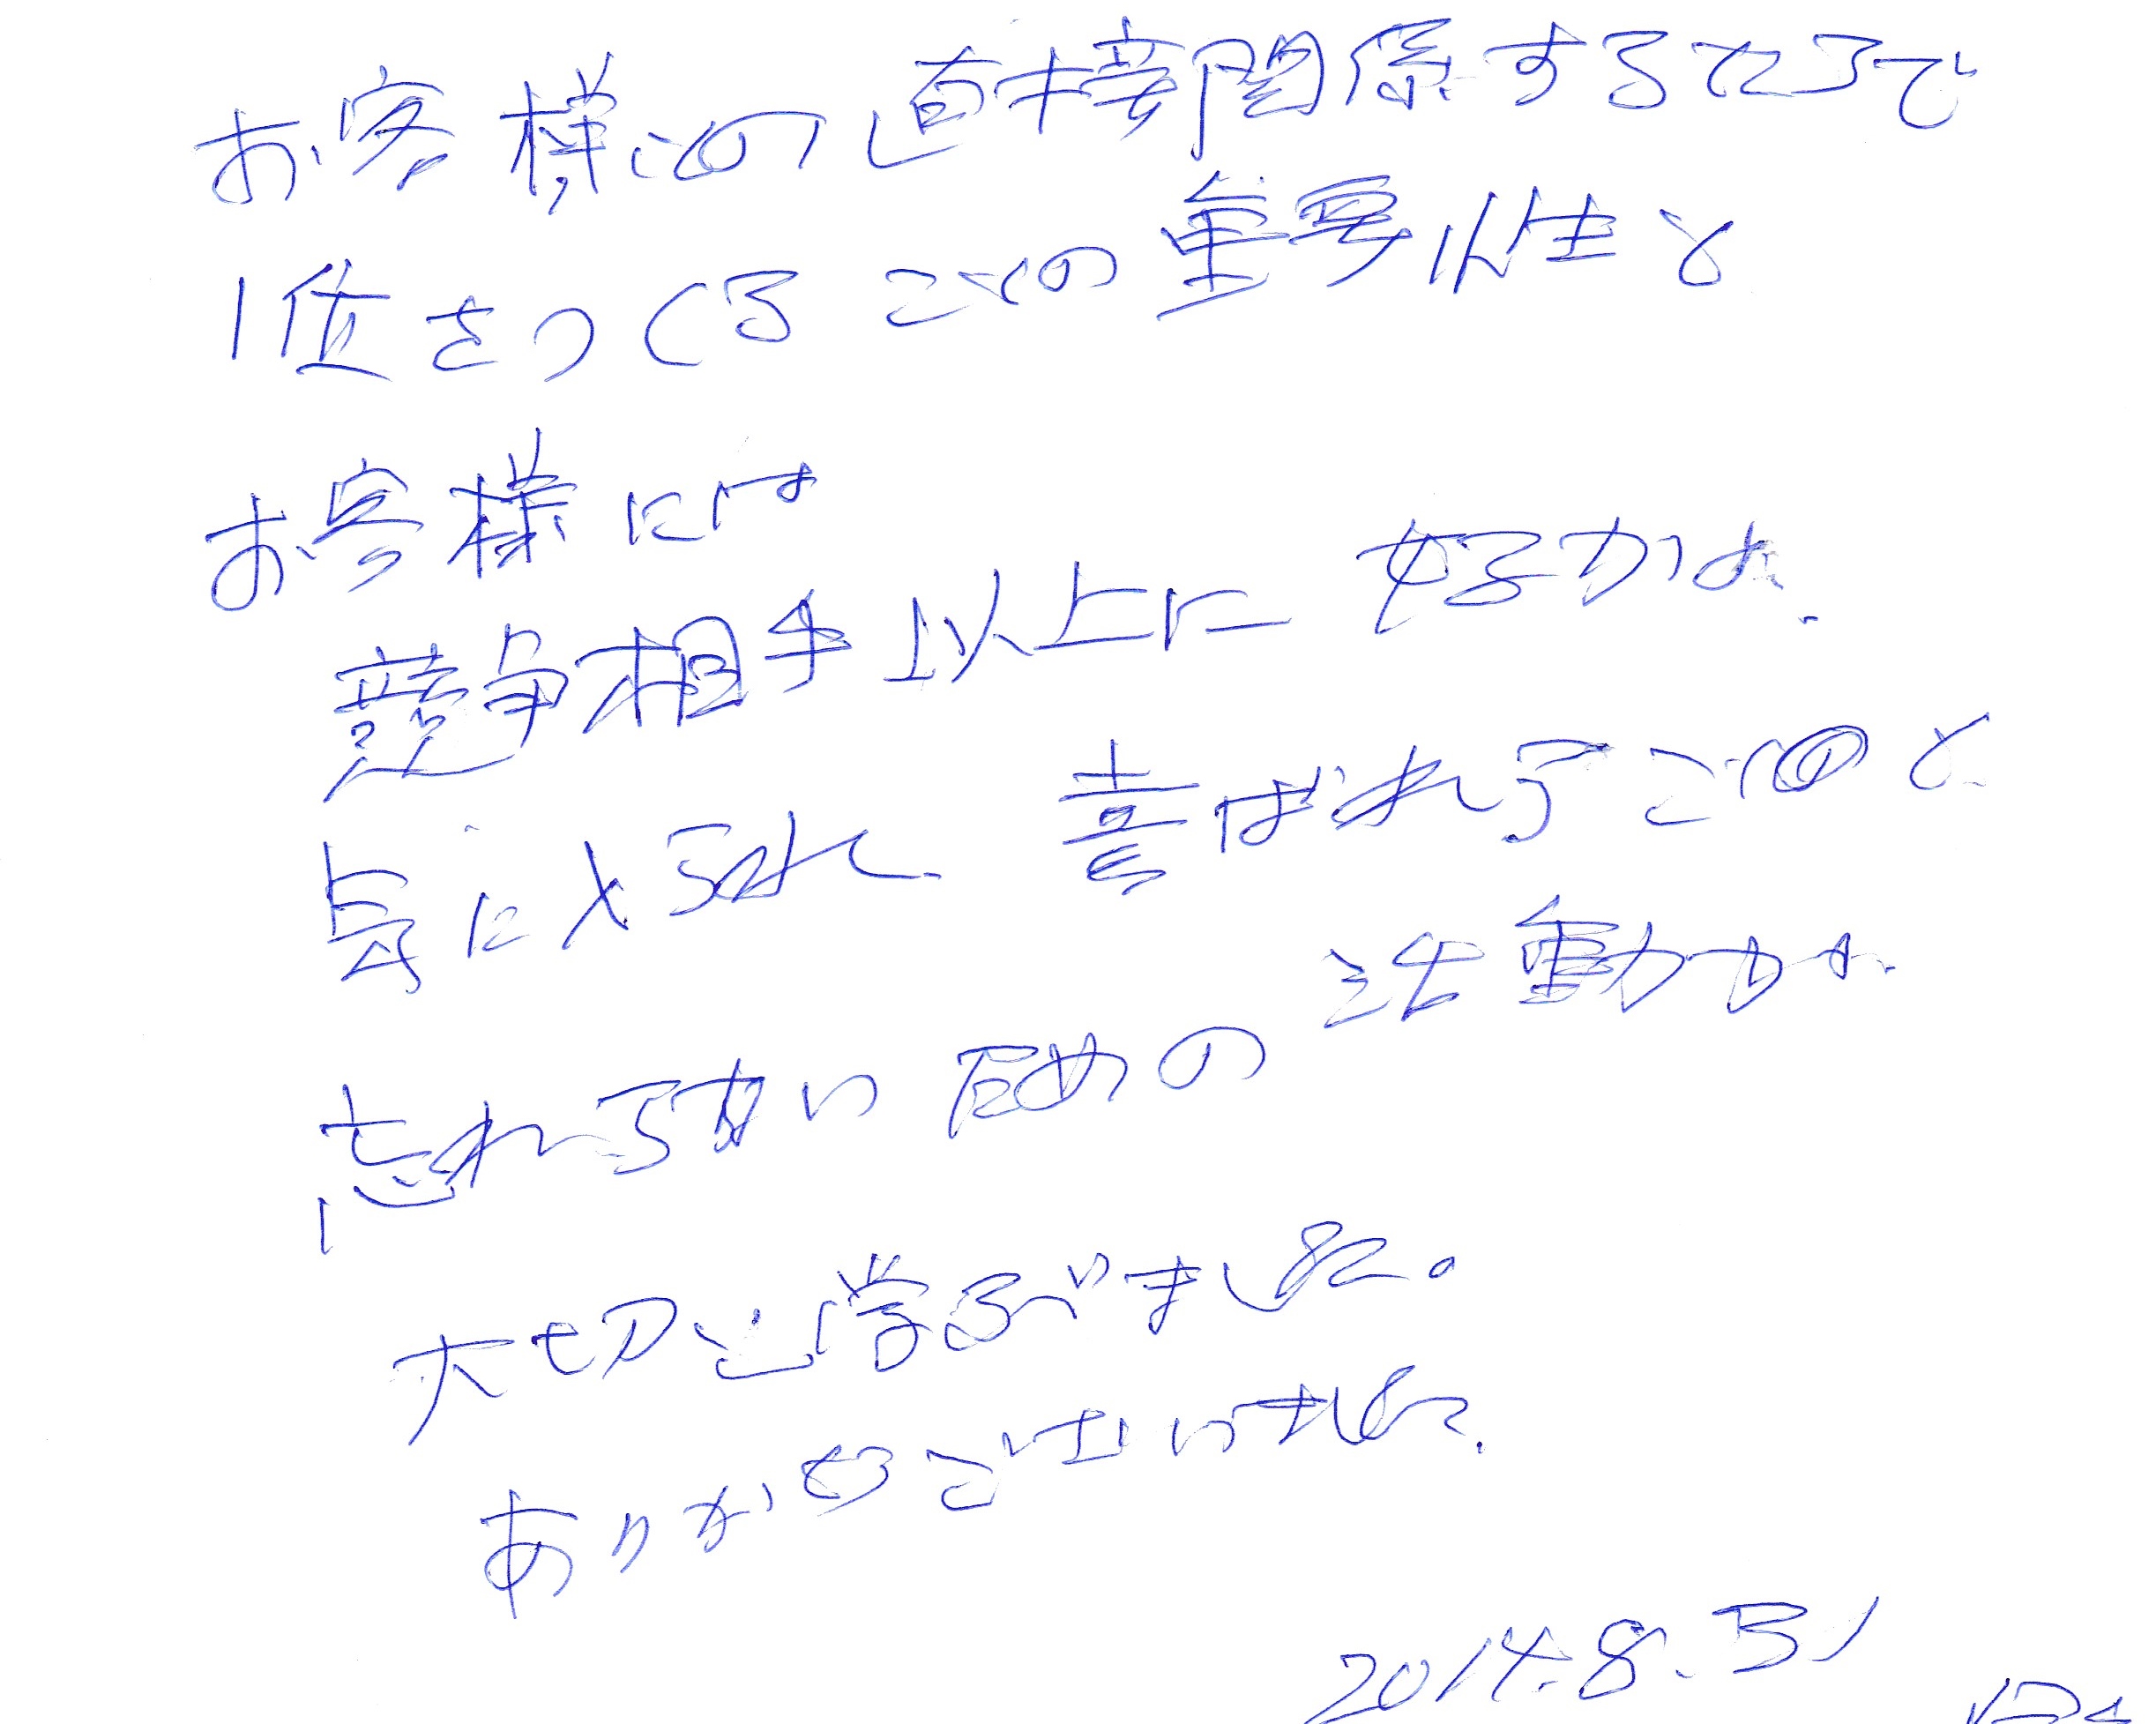 お客様との直接関係するところで
1位をつくることの重要性と
お客様には
競争相手以上に 好かれ、
気に入られ、喜ばれることと
忘れらない ための 活動が
大切と学ぶいました。
ありがとうございました。
2014.8.31